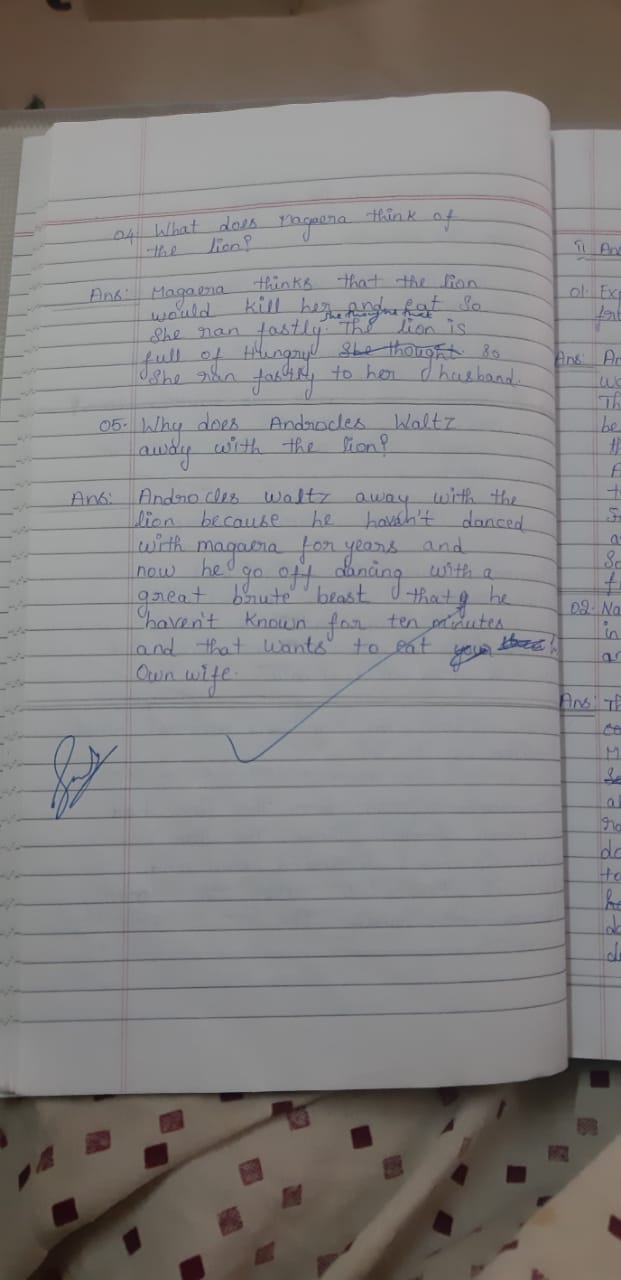 04. What does Magaera think of
the lion?
Ans: Magaera thinks that the lion
would kill her and eat So
She ran fastly. The lion is
She thought that
full of Hungry She thought So
She ran fastly to her husband.
05. Why does Androcles Waltz
away with the lion?
Ans: Androcles waltz away with the
lion because he havsn't danced
with magaera for years and
now he go off dancing with a
great brute beast that he
haven't known for ten minutes
and that wants to eat your
Own wife.
ii Ans
01. Exp
Ans: An
wo
Th
be
th
A
to
a
So
f
02. Na
in
an
Ans: Th
M
al
ro
do
to
he
do